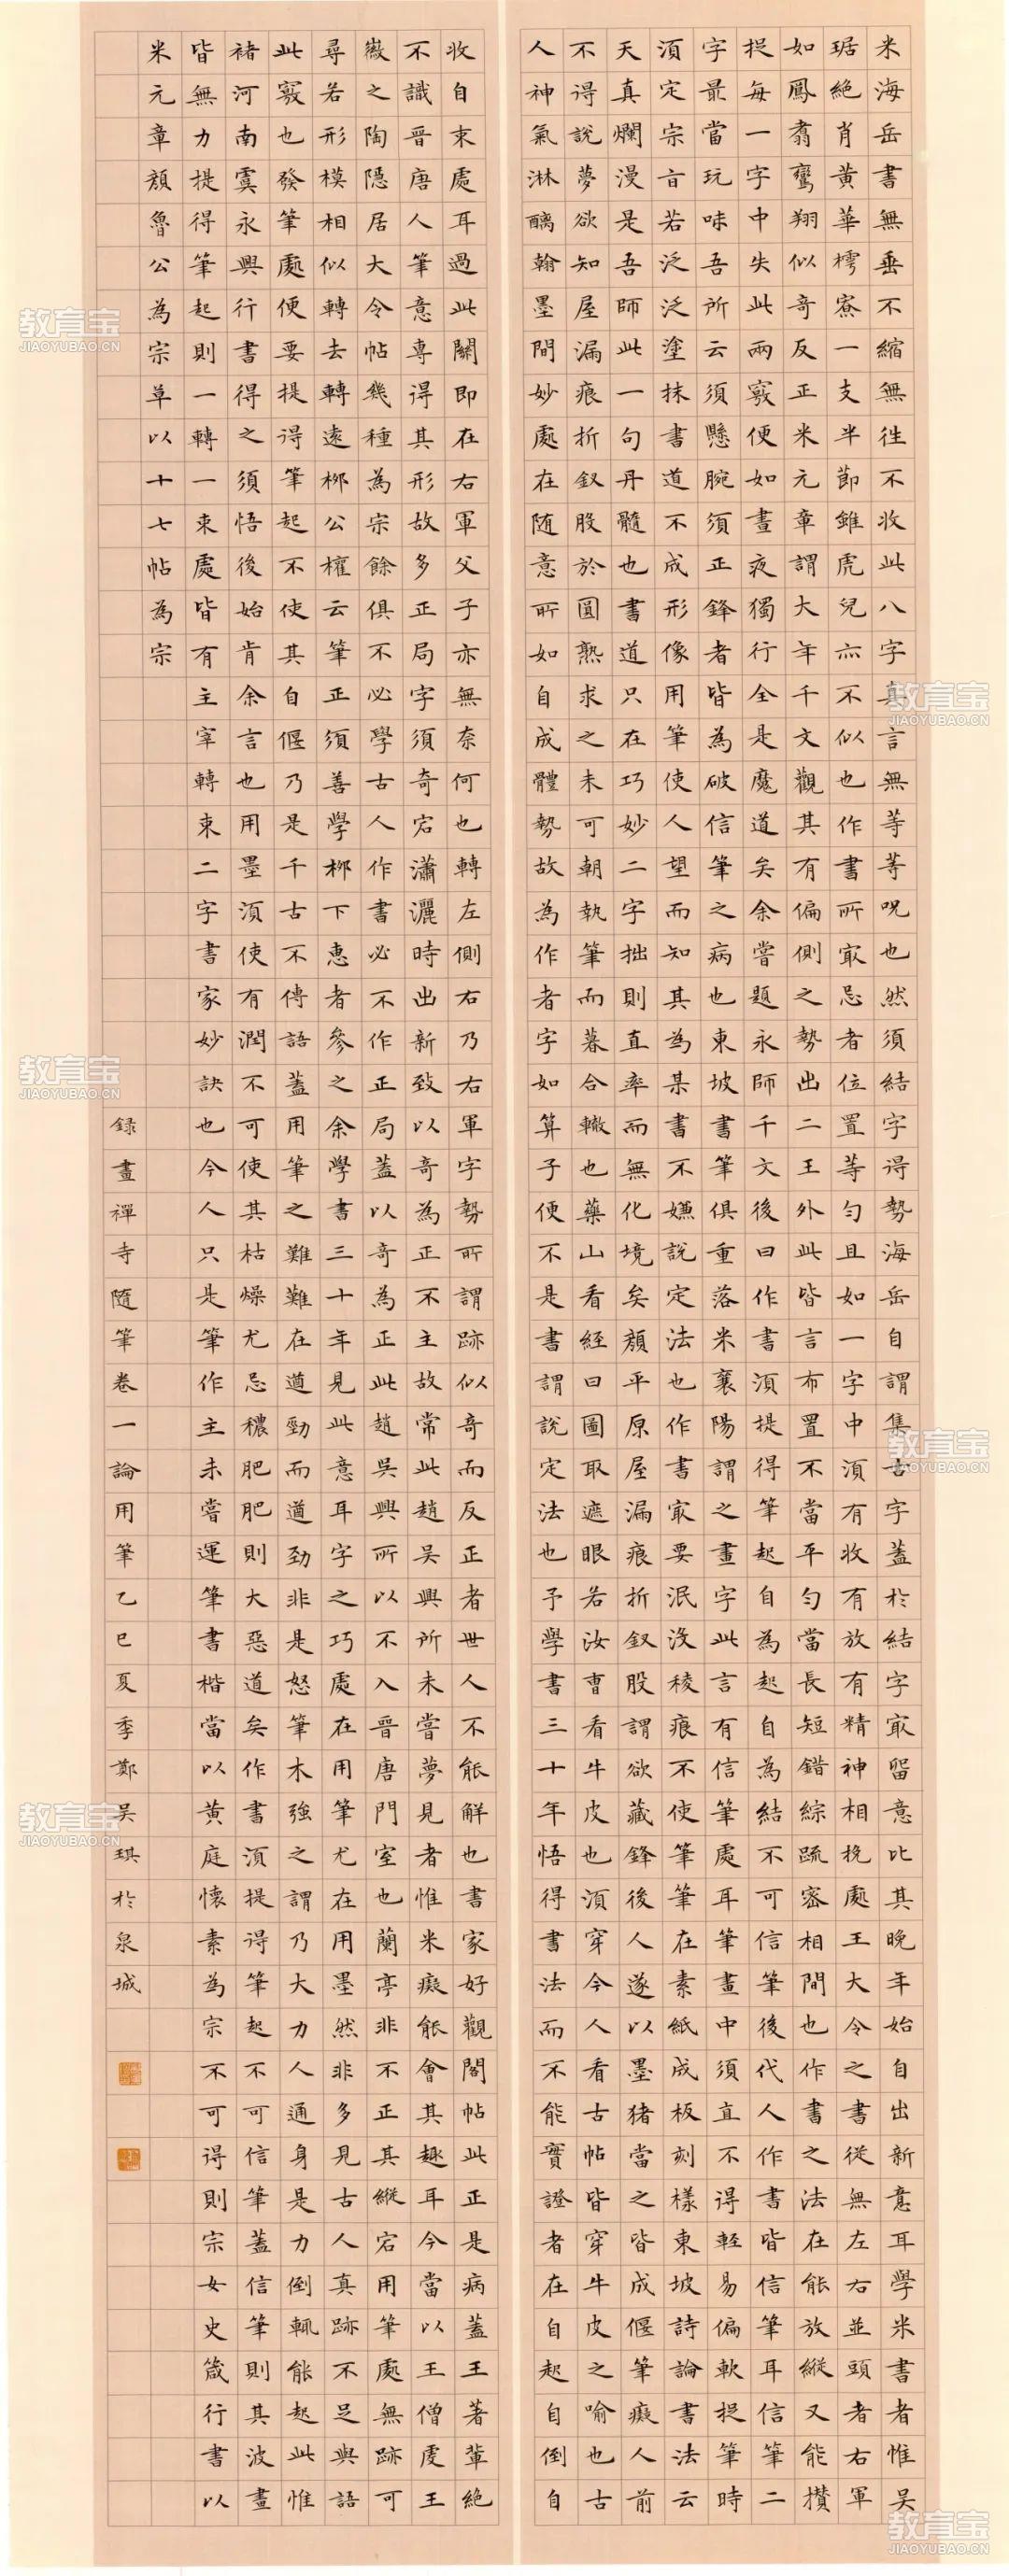 米海岳書無垂不縮無往不收此八字真言無等等呪也然須結字得勢海岳自謂集古字蓋於結字最留意比其晚年始自出新意耳學米書者惟吴
琚絕肖黃華樗寮一支半節雖虎兒亦不似也作書所最忌者位置等勻且如一字中須有收有放有精神相挽處王大令之書從無左右並頭者右軍
如鳳翥鸞翔似奇反正米元章謂大年千文觀其有偏側之勢出二王外此皆言布置不當平勻當長短錯綜疏密相間也作書之法在能放縱又能攢
捉每一字中失此兩竅便如晝夜獨行全是魔道矣余嘗題永師千文後曰作書須提得筆起自為起自為結不可信筆後代人作書皆信筆耳信筆二
字最當玩味吾所云須懸腕須正鋒者皆為破信筆之病也東坡書筆俱重落米襄陽謂之畫字此言有信筆處耳筆畫中須直不得輕易偏軟捉筆時
須定宗旨若泛泛塗抹書道不成形像用筆使人望而知其為某書不嫌說定法也作書最要泯沒稜痕不使筆筆在素紙成板刻樣東坡詩論書法云
天真爛漫是吾師此一句丹髓也書道只在巧妙二字拙則直率而無化境矣顏平原屋漏痕折釵股謂欲藏鋒後人遂以墨猪當之皆成偃筆癡人前
不得說夢欲知屋漏痕折釵股於圓熟求之未可朝執筆而暮合轍也藥山看經曰圖取遮眼若汝曹看牛皮也須穿今人看古帖皆穿牛皮之喻也古
人神氣淋醨翰墨間妙處在随意所如自成體勢故為作者字如算子便不是書謂說定法也予學書三十年悟得書法而不能實證者在自起自倒自
收自束處耳過此關即在右軍父子亦無奈何也轉左側右乃右軍字勢所謂跡似奇而反正者世人不能解也書家好觀閣帖此正是病蓋王著輩絕
不識晉唐人筆意專得其形故多正局字須奇宕瀟灑時出新致以奇為正不主故常此趙吳興所未嘗夢見者惟米癡能會其趣耳今當以王僧虔王
徽之陶隱居大令帖幾種為宗餘俱不必學古人作書必不作正局蓋以奇為正此趙吳興所以不入晉唐門室也蘭亭非不正其縱宕用筆處無跡可
尋若形模相似轉去轉遠柳公權云筆正須善學柳下惠者參之余學書三十年見此意耳字之巧處在用筆尤在用墨然非多見古人真跡不足與語
此竅也發筆處便要提得筆起不使其自偃乃是千古不傳語蓋用筆之難難在遒勁而遒勁非是怒筆木強之謂乃大力人通身是力倒輒能起此惟
褚河南虞永興行書得之須悟後始肯余言也用墨須使有潤不可使其枯燥尤忌穠肥肥則大惡道矣作書須提得筆起不可信筆蓋信筆則其波畫
皆無力提得筆起則一轉一束處皆有主宰轉束二字書家妙訣也今人只是筆作主未嘗運筆書楷當以黃庭懷素為宗不可得則宗女史箴行書以
米元章顏魯公為宗草以十七帖為宗
録畫禪寺隨筆卷一論用筆乙巳夏季鄭吴琪於泉城
教育宝
JIAOYUBAO.CN
教育宝
JIAOYUBAO.CN
教育宝
JIAOYUBAO.CN
教育宝
JIAOYUBAO.CN
教育宝
JIAOYUBAO.CN
教育宝
JIAOYUBAO.CN